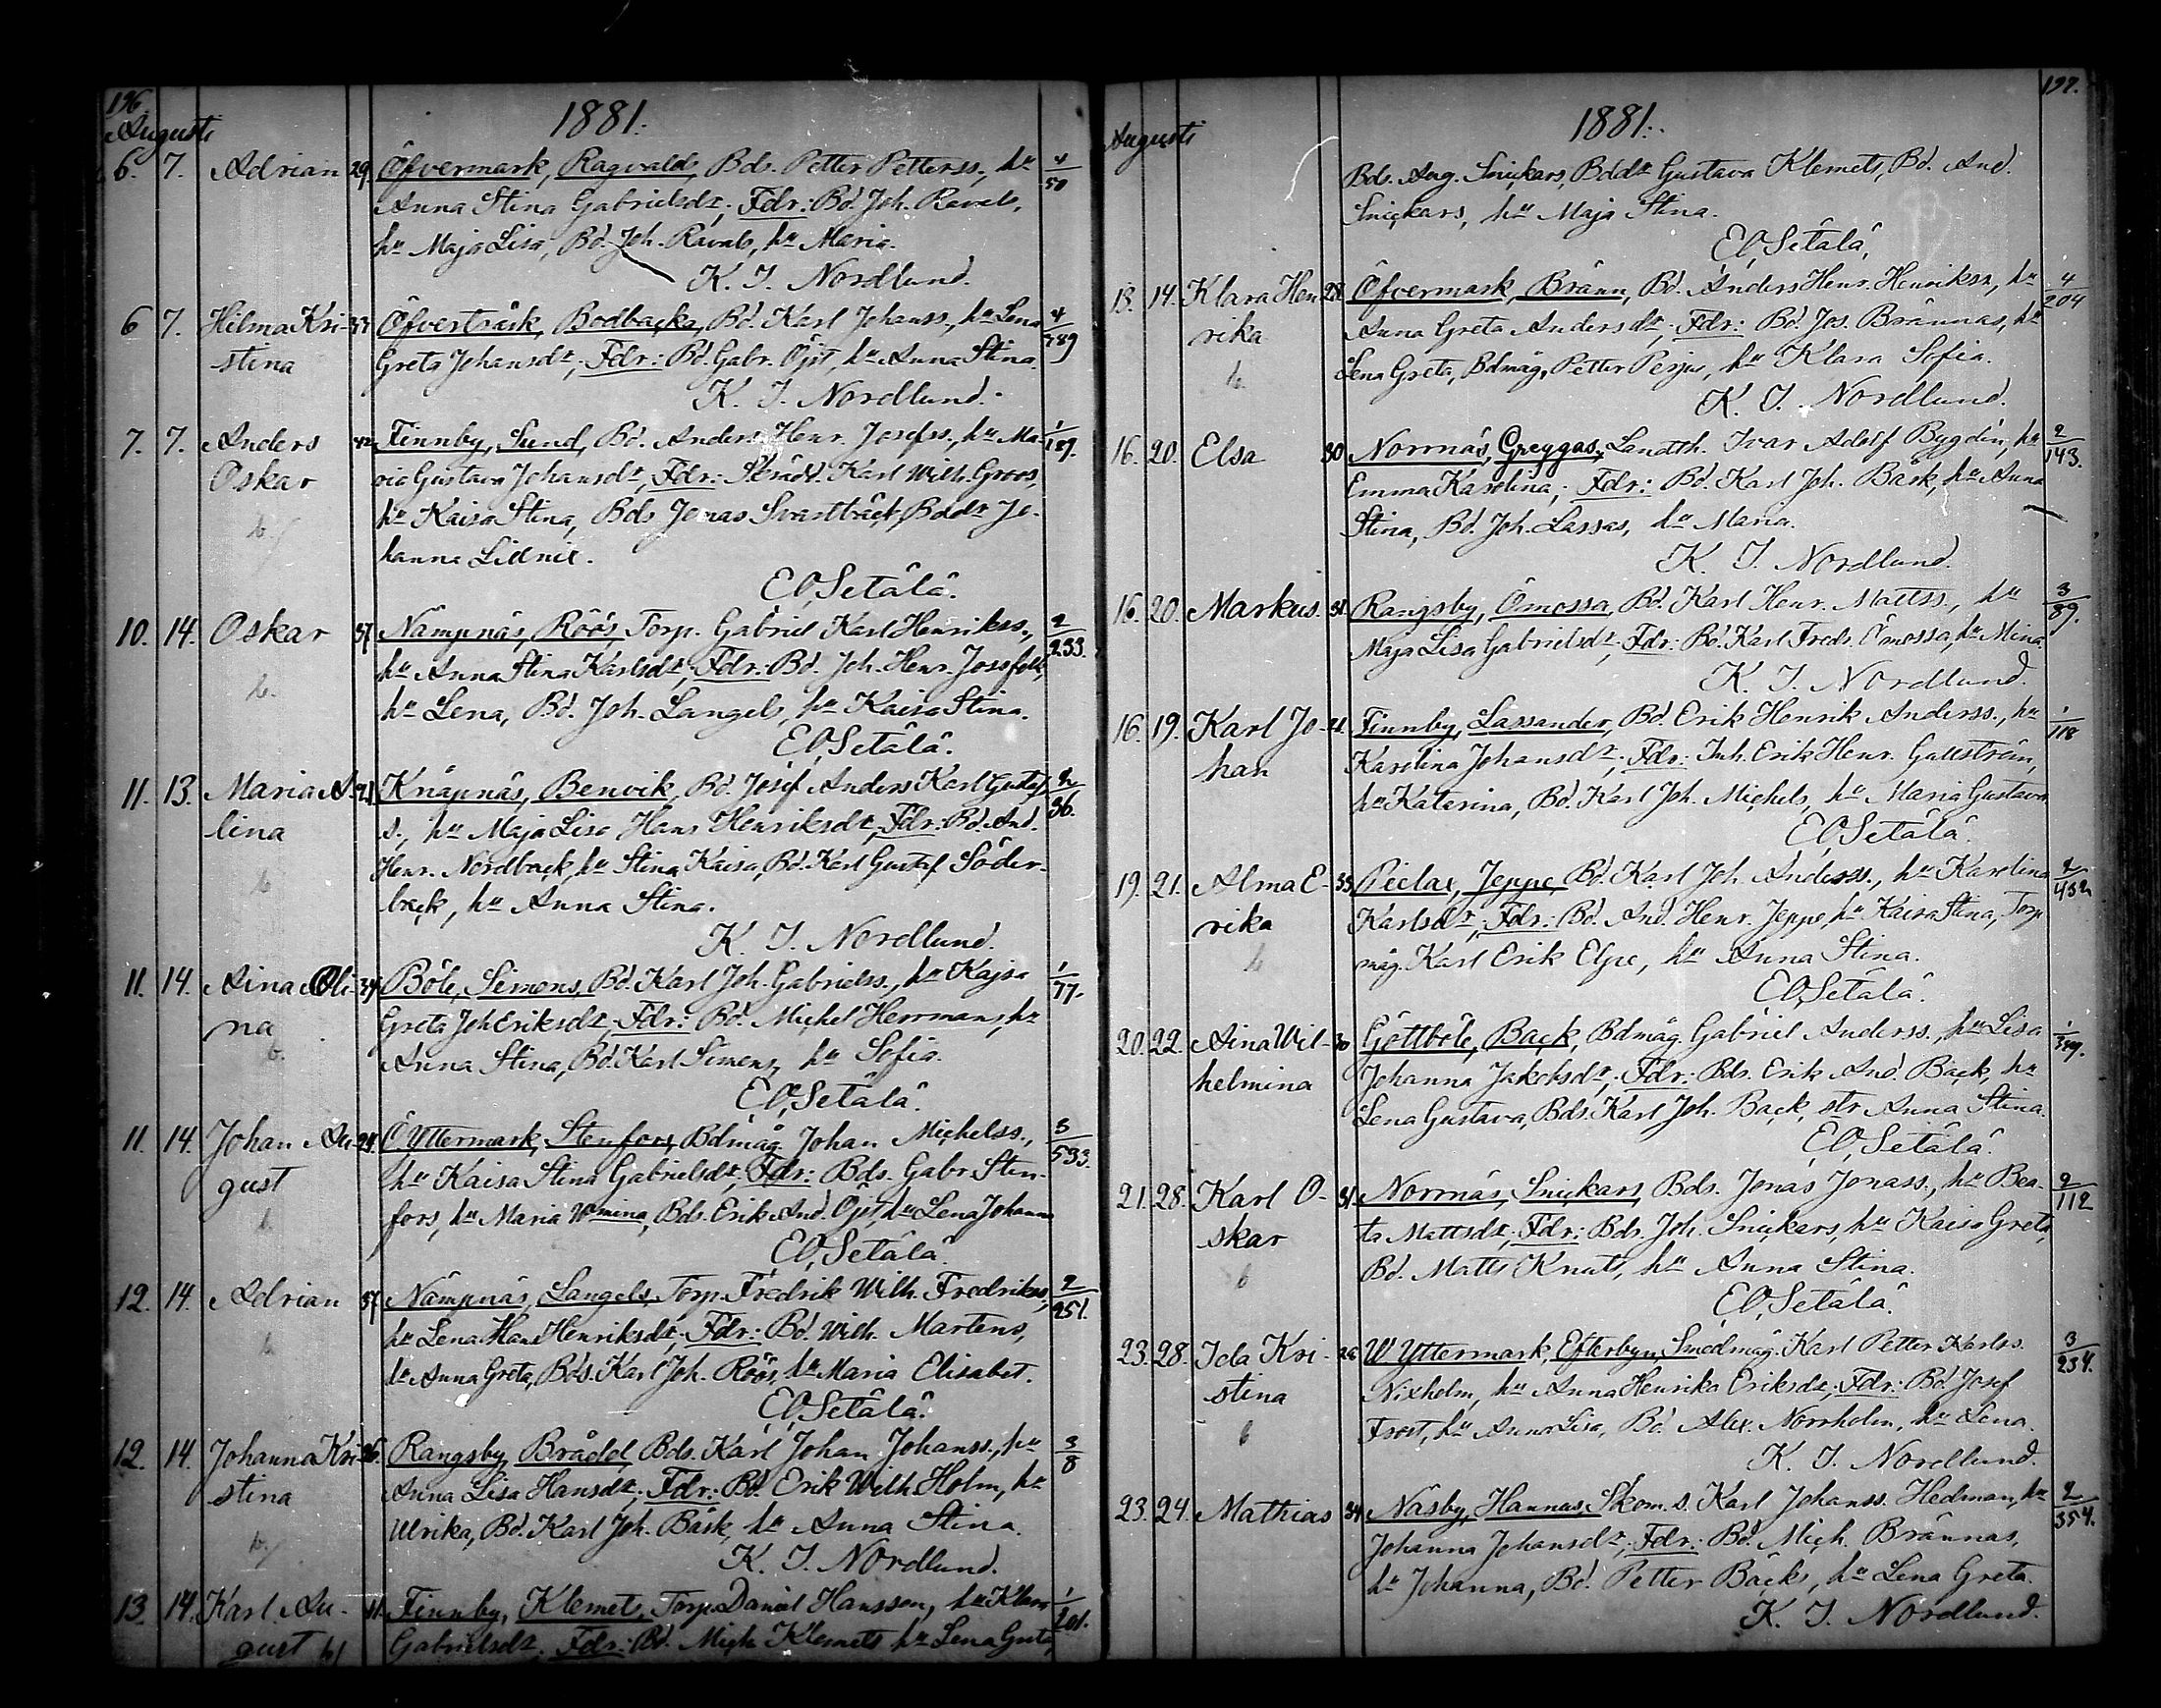 196.
Augusti
1881.
6. 7. Adrian 29. Öfvermark, Ragvalds, Bds. Petter Petterss., hu 4/50
Anna Stina Gabrielsdr; Fdr: Bd. Joh. Ravals,
hu Maja Lisa, Bd. Joh. Ravals, hu Maria.
K. I. Nordlund.
6 7. Hilma Kri- 33 Öfverträsk, Bodbacka, Bd. Karl Johanss., hu Lena 4/389
stina Greta Johansdr; Fdr: Bd. Gabr. Öjst, hu Anna Stina.
K. I. Nordlund.
7. 7. Anders 42 Finnby, Sund, Bd. Anders Henr. Josefss., hu Ma- 1/189.
Oskar ria Gustava Johansdr, Fdr: Skrädd. Karl Wilh. Groos,
b. hu Kaisa Stina, Bds Jonas Svartbäck, Bddr Jo-
hanna Lillnix.
E O Setälä.
10. 14. Oskar 37. Nämpnäs, Röös, Torp. Gabriel Karl Henrikss., 2/233.
hu Anna Stina Karlsdr; Fdr: Bd. Joh. Henr. Jossfolk,
b. hu Lena, Bd. Joh. Langels, hu Kaisa Stina.
E O Setälä.
11. 13. Maria A- 21 Knäpnäs, Benvik, Bd. Josef Anders Karl Gustafs- 2/36.
lina s., hu Maja Lisa Hans Henriksdr; Fdr: Bd. And.
b Henr. Nordback, hu Stina Kaisa, Bd. Karl Gustaf Söder-
back, hu Anna Stina.
K. I. Nordlund.
11. 14. Aina Oli- 34 Böle, Simons, Bd. Karl Joh. Gabrielss., hu Kajsa 1/77.
na Greta Joh Eriksdr; Fdr: Bd. Michel Hermans, hu
b. Anna Stina, Bd. Karl Simons, hu Sofia.
E O Setälä.
11. 14. Johan Au- 24. Ö. Yttermark, Stenfors, Bdmåg Johan Michelss., 3/533.
gust hu Kaisa Stina Gabrielsdr; Fdr: Bds. Gabr. Sten-
b fors, hu Maria Wmina, Bds. Erik And. Öjst, hu Lena Johanna
E O Setälä.
12. 14. Adrian 37. Nämpnäs, Langels, Torp. Fredrik Wilh. Fredrikss., 2/251.
b hu Lena Hans Henriksdr; Fdr: Bd. Wilh. Martens,
hu Anna Greta, Bds. Karl Joh. Röös, hu Maria Elisabet.
E O Setälä.
12. 14. Johanna Kri- 26. Rangsby, Brådd, Bds. Karl Johan Johanss., hu 3/8
stina Anna Lisa Hansdr; Fdr: Bd. Erik Wilh Holm, hu
b. Ulrika, Bd. Karl Joh. Bäsk, hu Anna Stina.
K. I. Nordlund.
13. 14. Karl Au- 41. Finnby, Klemets, Torp. Daniel Hansson, hu Klara 1/201.
gust b/ Gabrielsdr; Fdr: Bd. Mich Klemets hu Lena Greta,
197.
Augusti
1881.
Bds. Aug. Snickars, Bddr Gustava Klemets, Bd. And.
Snickars, hu Maja Stina.
E O Setälä.
13. 14. Klara Hen- 28. Öfvermark, Bränn, Bd. Anders Henr. Henrikss, hu 4/204
rika Anna Greta Andersdr; Fdr: Bd. Jos. Brännas, hu
b. Lena Greta, Bdmåg. Petter Perjus, hu Klara Sofia.
K. I. Nordlund.
16. 20. Elsa 30 Norrnäs, Greggas, Landth. Ivar Adolf Bygdén, hu 2/143.
Emma Karolina; Fdr: Bd. Karl Joh. Bäsk, hu Anna
Stina, Bd. Joh. Lassas, hu Maria.
K. I. Nordlund.
16. 20. Markus. 31. Rangsby, Ömossa, Bd. Karl Henr. Mattss., hu 3/89.
Maja Lisa Gabrielsdr; Fdr: Bd. Karl Fredr. Ömossa, hu Mina.
K. I. Nordlund.
16. 19. Karl Jo- 21. Finnby, Lassander, Bd. Erik Henrik Anderss., hu 1/118
han Karolina Johansdr; Fdr: Inh. Erik Henr. Gullström,
hu Katarina, Bd. Karl Joh. Michels, hu Maria Gustava.
E O Setälä.
19. 21. Alma E- 33. Pielax, Jeppe, Bd. Karl Joh. Anderss., hu Karolina 2/432
rika Karlsdr; Fdr: Bd. And. Henr. Jeppe, hu Kaisa Stina, Torp
b måg. Karl Erik Elge, hu Anna Stina.
E O Setälä.
20. 22. Aina Wil- 30 Gottböle, Back, Bdmåg Gabriel Anderss., hu Lisa 1/349.
helmina Johanna Jakobsdr; Fdr: Bds. Erik And. Back, hu
Lena Gustava, Bds. Karl Joh. Back, str Anna Stina.
E O Setälä.
21. 28. Karl O- 31. Norrnäs, Snickars, Bds. Jonas Jonass., hu Bea- 2/112
skar ta Mattsdr; Fdr: Bds. Joh. Snickars, hu Kaisa Greta,
b Bd. Matts Knuts, hu Anna Stina.
E O Setälä.
23. 28. Ida Kri- 26 W. Yttermark, Efterbyn, Smedmåg. Karl Petter Karlss. 3/234.
stina Nixholm, hu Anna Henrika Eriksdr; Fdr: Bd. Josef
b Frost, hu Anna Lisa, Bd. Alex. Norrholm, hu Lena.
K. I. Nordlund.
23. 24. Mathias 34. Näsby, Hannus, Skom. s. Karl Johanss. Hedman, hu 2/354.
Johanna Johansdr; Fdr: Bd. Mich. Brännas,
hu Johanna, Bd. Petter Bäcks, hu Lena Greta.
K. I. Nordlund.